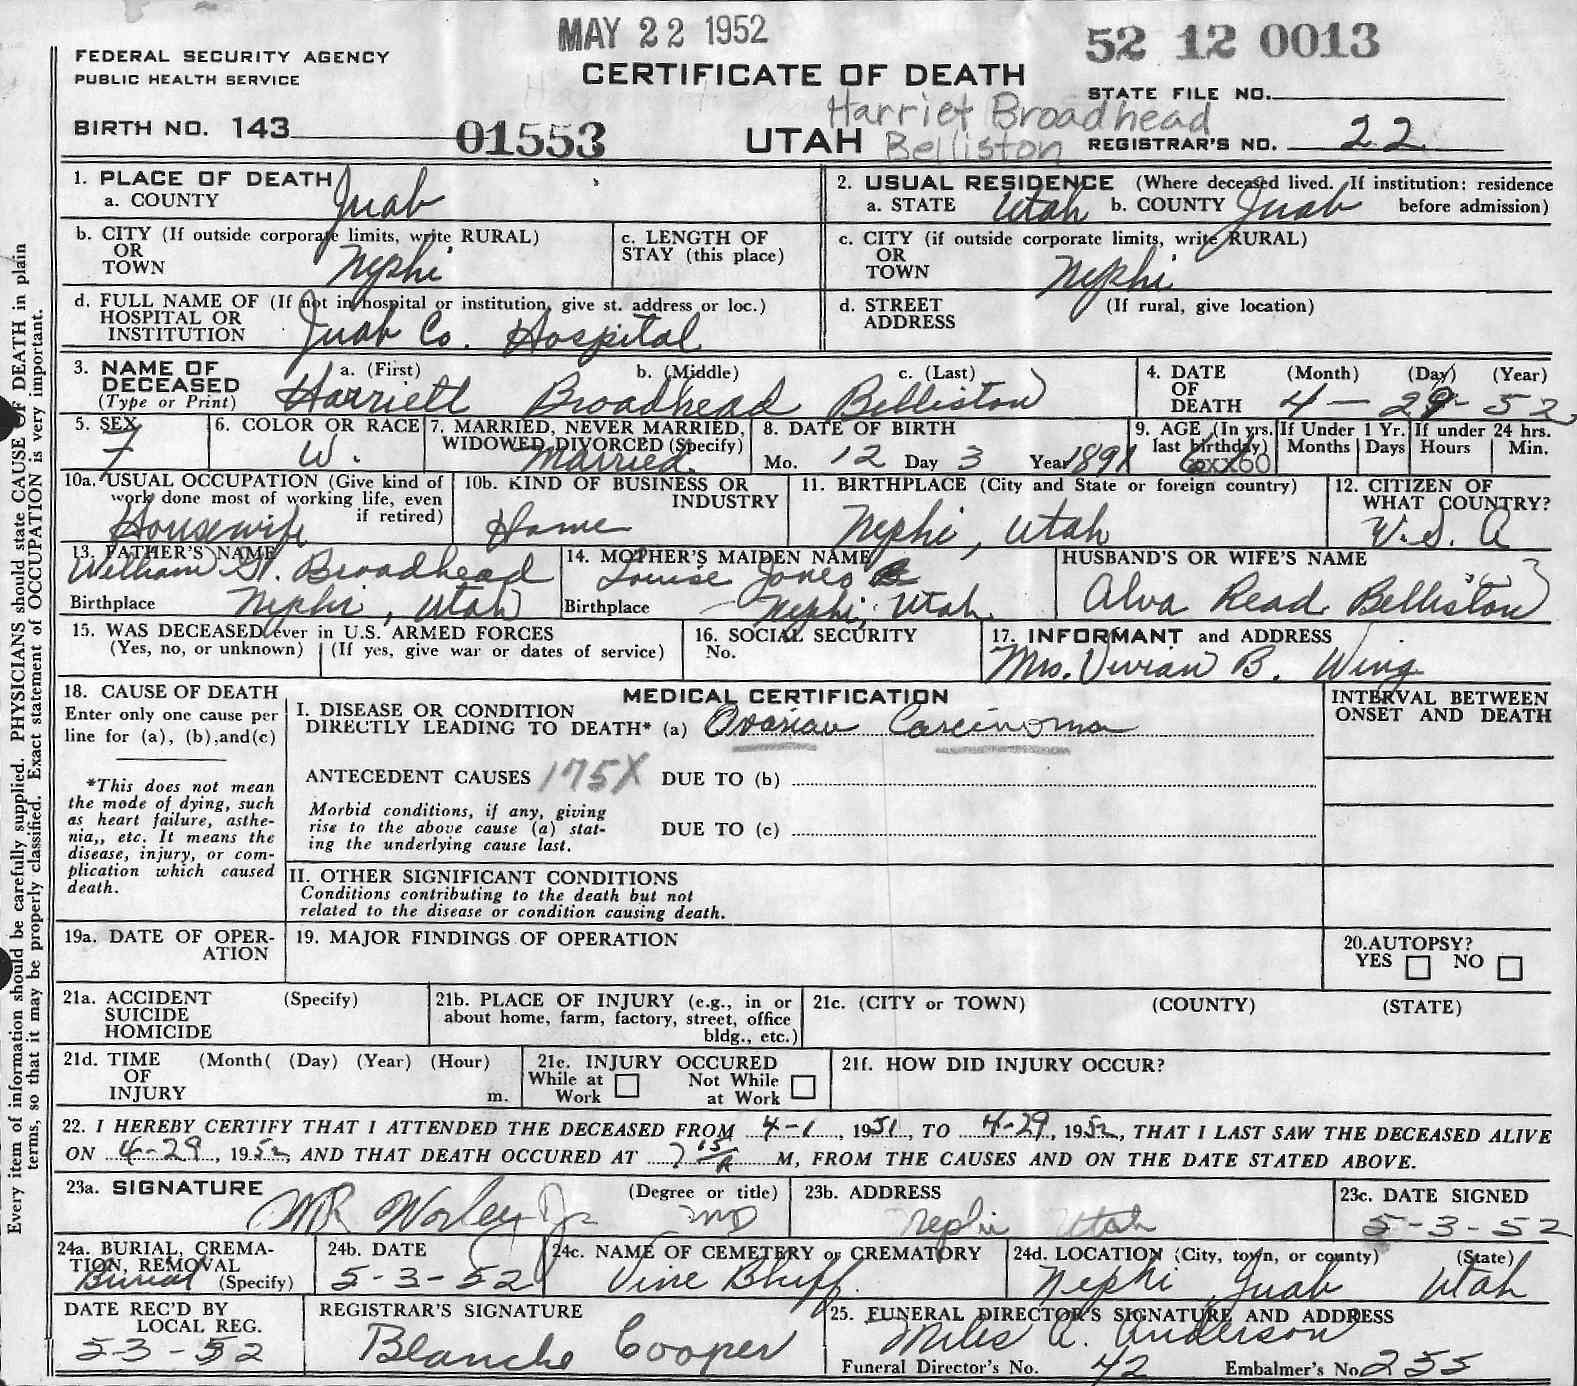 MAY 22 1952
52 12 0013
FEDERAL SECURITY AGENCY
PUBLIC HEALTH SERVICE
CERTIFICATE OF DEATH
STATE FILE NO.
Harriet Broadhead
BIRTH NO. 143
01553
UTAH
Belliston
REGISTRAR'S NO. 22
Every item of information should be carefully supplied. PHYSICIANS should state CAUSE OF DEATH in plain
terms, so that it may be properly classified. Exact statement of OCCUPATION is very important.
1. PLACE OF DEATH
a. COUNTY Juab
2. USUAL RESIDENCE (Where deceased lived. If institution: residence
a. STATE Utah b. COUNTY Juab before admission)
b. CITY (If outside corporate limits, write RURAL)
OR
TOWN Nephi
c. LENGTH OF
STAY (this place)
c. CITY (if outside corporate limits, write RURAL)
OR
TOWN Nephi
d. FULL NAME OF (If not in hospital or institution, give st. address or loc.)
HOSPITAL OR
INSTITUTION Juab Co. Hospital
d. STREET (If rural, give location)
ADDRESS
3. NAME OF a. (First) b. (Middle) c. (Last)
DECEASED
(Type or Print) Harriett Broadhead Belliston
4. DATE (Month) (Day) (Year)
OF
DEATH 4 - 29 - 52
5. SEX
F
6. COLOR OR RACE
W.
7. MARRIED, NEVER MARRIED,
WIDOWED, DIVORCED (Specify)
Married
8. DATE OF BIRTH
Mo. 12 Day 3 Year 1891
9. AGE (In yrs.
last birthday)
60
If Under 1 Yr.
Months Days
If under 24 hrs.
Hours Min.
10a. USUAL OCCUPATION (Give kind of
work done most of working life, even
if retired)
Housewife
10b. KIND OF BUSINESS OR
INDUSTRY
Home
11. BIRTHPLACE (City and State or foreign country)
Nephi, Utah
12. CITIZEN OF
WHAT COUNTRY?
U.S.A
13. FATHER'S NAME
William H. Broadhead
Birthplace Nephi, Utah
14. MOTHER'S MAIDEN NAME
Louise Jones
Birthplace Nephi, Utah
HUSBAND'S OR WIFE'S NAME
Alva Read Belliston
15. WAS DECEASED ever in U.S. ARMED FORCES
(Yes, no, or unknown) (If yes, give war or dates of service)
16. SOCIAL SECURITY
No.
17. INFORMANT and ADDRESS
Mrs. Vivian B. Wing
18. CAUSE OF DEATH
Enter only one cause per
line for (a), (b), and (c)
*This does not mean
the mode of dying, such
as heart failure, asthe-
nia,, etc. It means the
disease, injury, or com-
plication which caused
death.
MEDICAL CERTIFICATION
I. DISEASE OR CONDITION
DIRECTLY LEADING TO DEATH* (a) Ovarian Carcinoma
ANTECEDENT CAUSES 175X DUE TO (b)
Morbid conditions, if any, giving
rise to the above cause (a) stat-
ing the underlying cause last.
DUE TO (c)
II. OTHER SIGNIFICANT CONDITIONS
Conditions contributing to the death but not
related to the disease or condition causing death.
INTERVAL BETWEEN
ONSET AND DEATH
19a. DATE OF OPER-
ATION
19. MAJOR FINDINGS OF OPERATION
20. AUTOPSY?
YES NO
21a. ACCIDENT (Specify)
SUICIDE
HOMICIDE
21b. PLACE OF INJURY (e.g., in or
about home, farm, factory, street, office
bldg., etc.)
21c. (CITY or TOWN) (COUNTY) (STATE)
21d. TIME (Month( (Day) (Year) (Hour)
OF
INJURY m.
21e. INJURY OCCURED
While at Work Not While at Work
21f. HOW DID INJURY OCCUR?
22. I HEREBY CERTIFY THAT I ATTENDED THE DECEASED FROM 4-1, 1951, TO 4-29, 1952, THAT I LAST SAW THE DECEASED ALIVE
ON 4-29, 1952, AND THAT DEATH OCCURED AT 7 15 A M, FROM THE CAUSES AND ON THE DATE STATED ABOVE.
23a. SIGNATURE (Degree or title)
MR Worley Jr MD
23b. ADDRESS
Nephi Utah
23c. DATE SIGNED
5-3-52
24a. BURIAL, CREMA-
TION, REMOVAL
Burial (Specify)
24b. DATE
5-3-52
24c. NAME OF CEMETERY or CREMATORY
Vine Bluff
24d. LOCATION (City, town, or county) (State)
Nephi Juab Utah
DATE REC'D BY
LOCAL REG.
5-3-52
REGISTRAR'S SIGNATURE
Blanche Cooper
25. FUNERAL DIRECTOR'S SIGNATURE AND ADDRESS
Miles A. Anderson
Funeral Director's No. 42 Embalmer's No 255